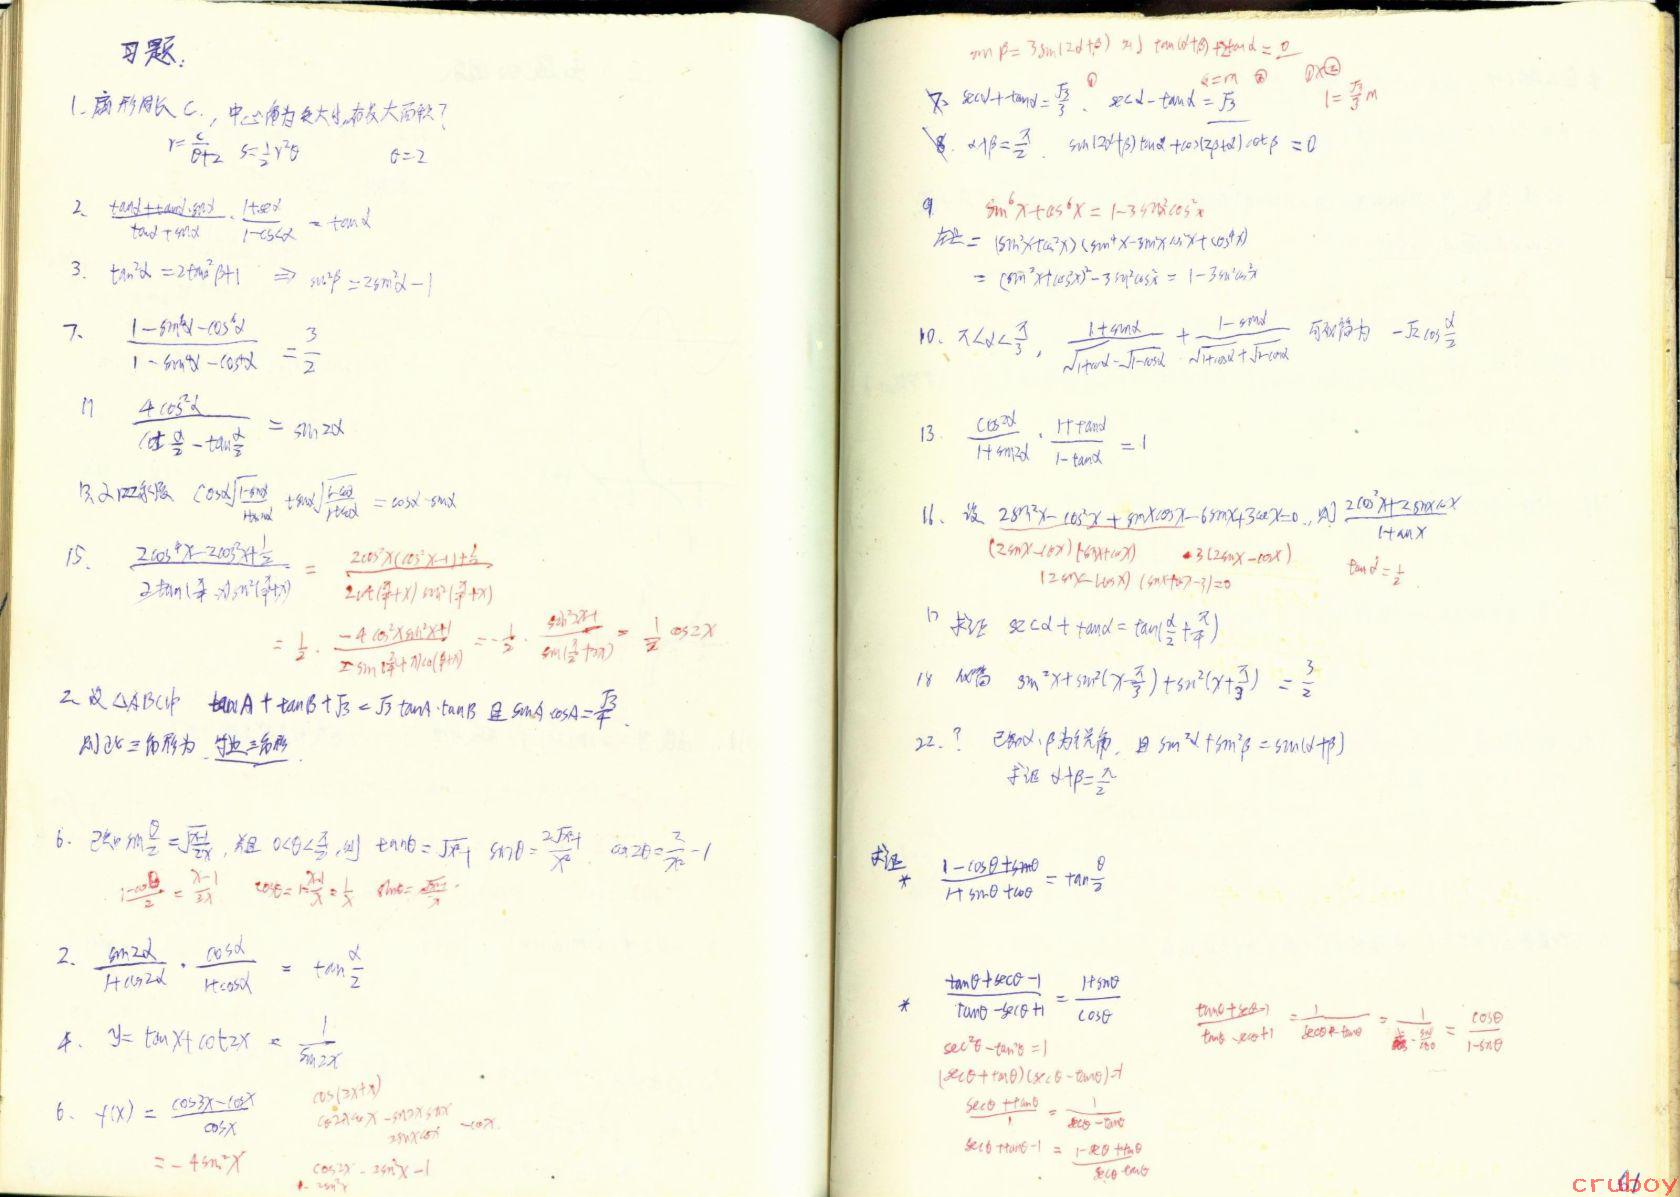 习题:
1. 扇形周长 C., 中心角为多大时,有最大面积?
r=\frac{c}{θ+2} S=\frac{1}{2}r²θ θ=2
2. \frac{tanα+tanα·sinα}{tanα+sinα}·\frac{1+secα}{1+cscα} = tanα
3. tan²α=2tan²β+1 ⇒ sin²β=2sin²α-1
7. \frac{1-sin⁶α-cos⁶α}{1-sin⁴α-cos⁴α} = \frac{3}{2}
11 \frac{4cos²α}{cot\frac{α}{2}-tan\frac{α}{2}} = sin2α
cosα\sqrt{\frac{1-sinα}{1+sinα}}+sinα\sqrt{\frac{1-cosα}{1+cosα}}=cosα-sinα
15. \frac{2cos⁴x-2cos²x+\frac{1}{2}}{2tan(\frac{π}{4}-x)sin²(\frac{π}{4}+x)} = \frac{2cos²x(cos²x-1)+\frac{1}{2}}{2cot(\frac{π}{4}+x)sin²(\frac{π}{4}+x)}
= \frac{1}{2}·\frac{-4cos²xsin²x+1}{2sin(\frac{π}{4}+x)cos(\frac{π}{4}+x)} = -\frac{1}{2}·\frac{sin²2x-1}{sin(\frac{π}{2}+2x)} = \frac{1}{2}cos2x
2. 设△ABC中 tanA+tanB+√3=√3tanA·tanB 且 sinAcosA=\frac{√3}{4}.
则此三角形为 等边三角形.
6. 已知sin\frac{θ}{2}=\sqrt{\frac{x-1}{2x}}, 且 0<θ<\frac{π}{2},则 tanθ=\sqrt{x²-1} sinθ=\frac{2\sqrt{x²-1}}{x²} cos2θ=\frac{2}{x²}-1
\frac{1-cosθ}{2}=\frac{x-1}{2x} cosθ=1-\frac{x-1}{x}=\frac{1}{x} sinθ=\frac{\sqrt{x²-1}}{x}.
2. \frac{sin2α}{1+cos2α}·\frac{cosα}{1+cosα} = tan\frac{α}{2}
4. y=tanx+cot2x = \frac{1}{sin2x}
6. f(x) = \frac{cos3x-cosx}{cosx}
cos(2x+x)
cos2xcosx-sin2xsinx -cosx.
2sinxcosx
=-4sin²x
cos2x-2sin²x-1
-2sin²x
sinβ=3sin(2α+β) 则 tan(α+β)+2tanα=0
7. secα+tanα=\frac{√3}{3} ①. secα-tanα=√3 =m ② ①×② 1=\frac{√3}{3}m
8. α+β=\frac{π}{2}. sin(2α+β)tanα+cos(2β+α)cotβ=0
9. sin⁶x+cos⁶x=1-3sin²xcos²x
左边=(sin²x+cos²x)(sin⁴x-sin²xcos²x+cos⁴x)
=(sin²x+cos²x)²-3sin²cos²x=1-3sin²cos²x
10. π<α<\frac{π}{3}, \frac{1+sinα}{\sqrt{1+cosα}-\sqrt{1-cosα}}+\frac{1-sinα}{\sqrt{1+cosα}+\sqrt{1-cosα}} 可化简为 -√2cos\frac{α}{2}
13. \frac{cos2α}{1+sin2α}·\frac{1+tanα}{1-tanα}=1
16. 设 2sin²x-cos²x+sinxcosx-6sinx+3cosx=0,则\frac{2cos²x+2sinxcosx}{1+tanx}
(2sinx-cosx)(sinx+cosx) -3(2sinx-cosx)
(2sinx-cosx)(sinx+cosx-3)=0 tanα=\frac{1}{2}
17 求证 secα+tanα=tan(\frac{α}{2}+\frac{π}{4})
18 化简 sin²x+sin²(x-\frac{π}{3})+sin²(x+\frac{π}{3}) = \frac{3}{2}
22.? 已知α、β为锐角. 且 sin²α+sin²β=sin(α+β)
求证 α+β=\frac{π}{2}
求证
* \frac{1-cosθ+sinθ}{1+sinθ+cosθ}=tan\frac{θ}{2}
* \frac{tanθ+secθ-1}{tanθ-secθ+1}=\frac{1+sinθ}{cosθ}
\frac{tanθ+secθ-1}{tanθ-secθ+1}=\frac{1}{secθ-tanθ}=\frac{1}{\frac{1}{cosθ}-\frac{sinθ}{cosθ}}=\frac{cosθ}{1-sinθ}
sec²θ-tan²θ=1
(secθ+tanθ)(secθ-tanθ)=1
\frac{secθ+tanθ}{1}=\frac{1}{secθ-tanθ}
secθ+tanθ-1=\frac{1-secθ+tanθ}{secθ-tanθ}
cruboy